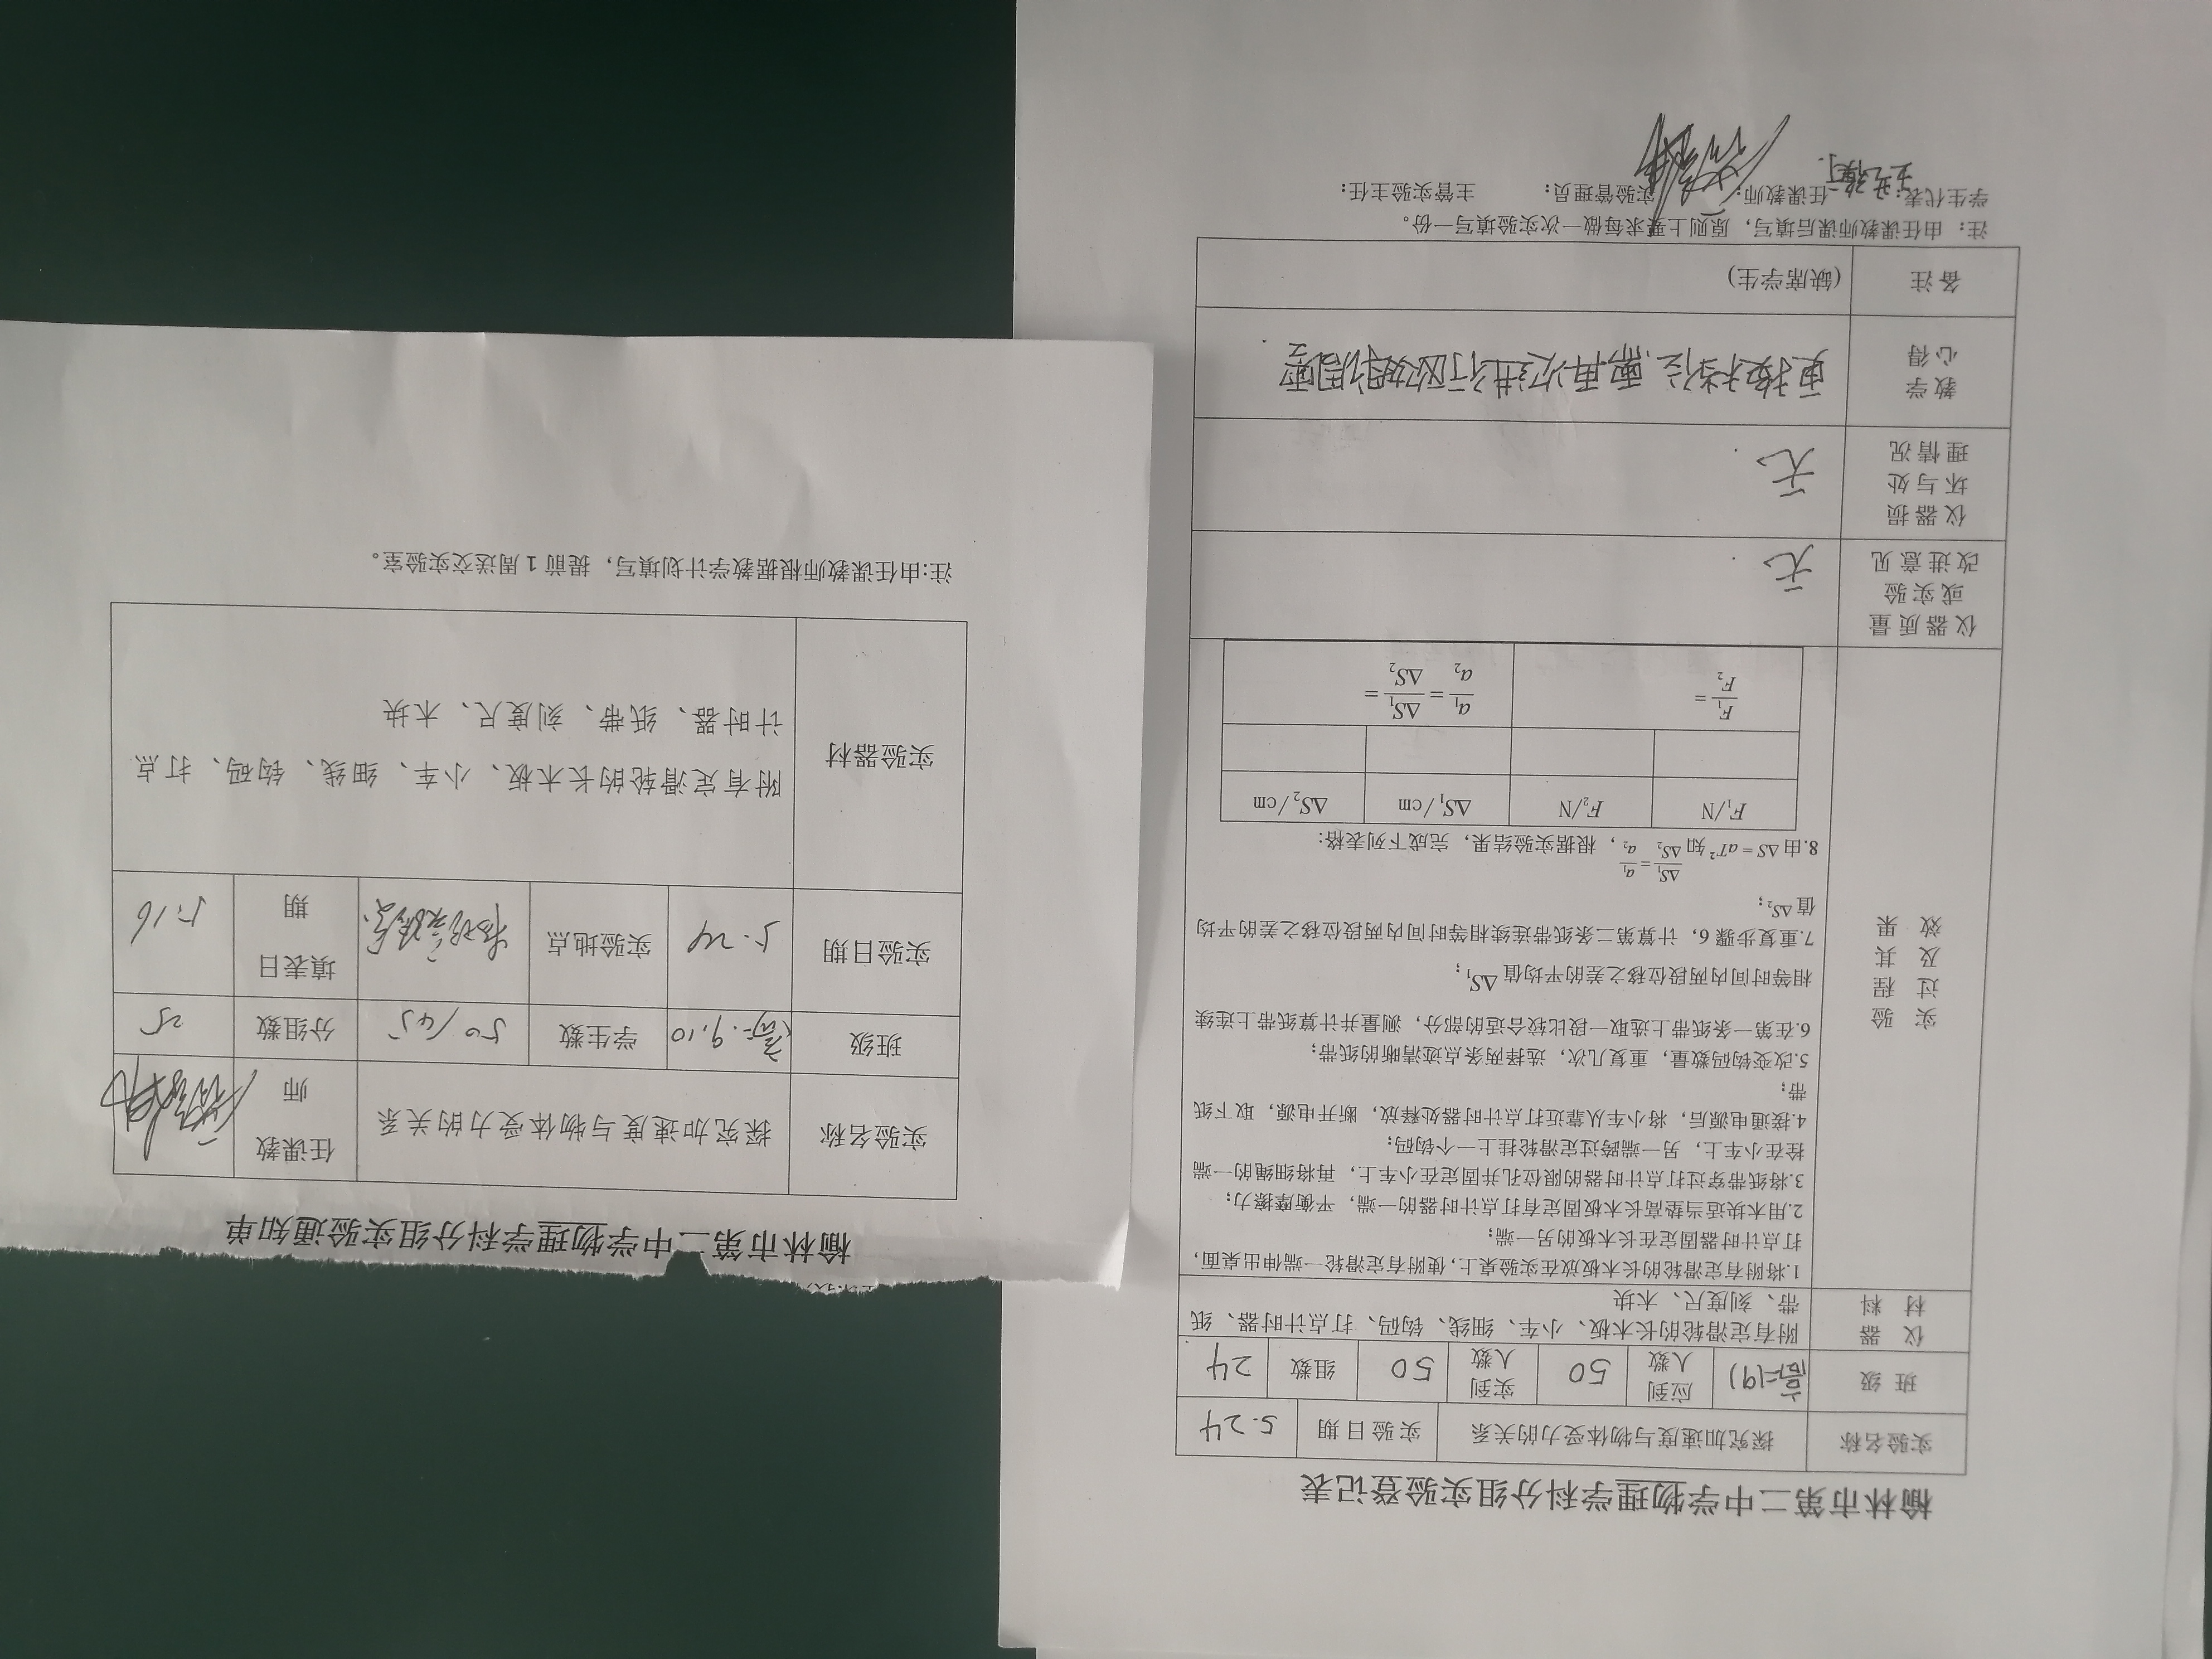 榆林市第二中学物理学科分组实验登记表
实验名称 探究加速度与物体受力的关系 实验日期 5.24
班级 高二(9) 应到人数 50 实到人数 50 组数 24
仪器材料 附有定滑轮的长木板、小车、细线、钩码、打点计时器、纸
带、刻度尺、木块
实验过程及其效果
1.将附有定滑轮的长木板放在实验桌上,使附有定滑轮一端伸出桌面,
打点计时器固定在长木板的另一端;
2.用木块适当垫高长木板固定有打点计时器的一端，平衡摩擦力;
3.将纸带穿过打点计时器的限位孔并固定在小车上，再将细绳的一端
拴在小车上，另一端跨过定滑轮挂上一个钩码;
4.接通电源后，将小车从靠近打点计时器处释放，断开电源，取下纸
带;
5.改变钩码数量，重复几次，选择两条点迹清晰的纸带;
6.在第一条纸带上选取一段比较合适的部分，测量并计算纸带上连续
相等时间内两段位移之差的平均值 ΔS₁;
7.重复步骤 6，计算第二条纸带连续相等时间内两段位移之差的平均
值 ΔS₂;
8.由 ΔS = aT² 知 ΔS₁/ΔS₂ = a₁/a₂，根据实验结果，完成下列表格:
F₁/N F₂/N ΔS₁/cm ΔS₂/cm
F₁/F₂ = a₁/a₂ = ΔS₁/ΔS₂ =
仪器质量或实验改进意见 无
仪器损坏与处理情况 无
教学心得 更换木当位,需再次进行
备注 (缺席学生)
注：由任课教师课后填写，原则上要求每做一次实验填写一份。
学生代表: 任课教师: 实验管理员: 主管实验主任:
榆林市第二中学物理学科分组实验通知单
实验名称 探究加速度与物体受力的关系 任课教师
班级 高二.9,10 学生数 50/45 分组数 25
实验日期 5.24 实验地点 物理实验室 填表日期 5.16
实验器材 附有定滑轮的长木板、小车、细线、钩码、打点
计时器、纸带、刻度尺、木块
注:由任课教师根据教学计划填写，提前 1 周送交实验室。